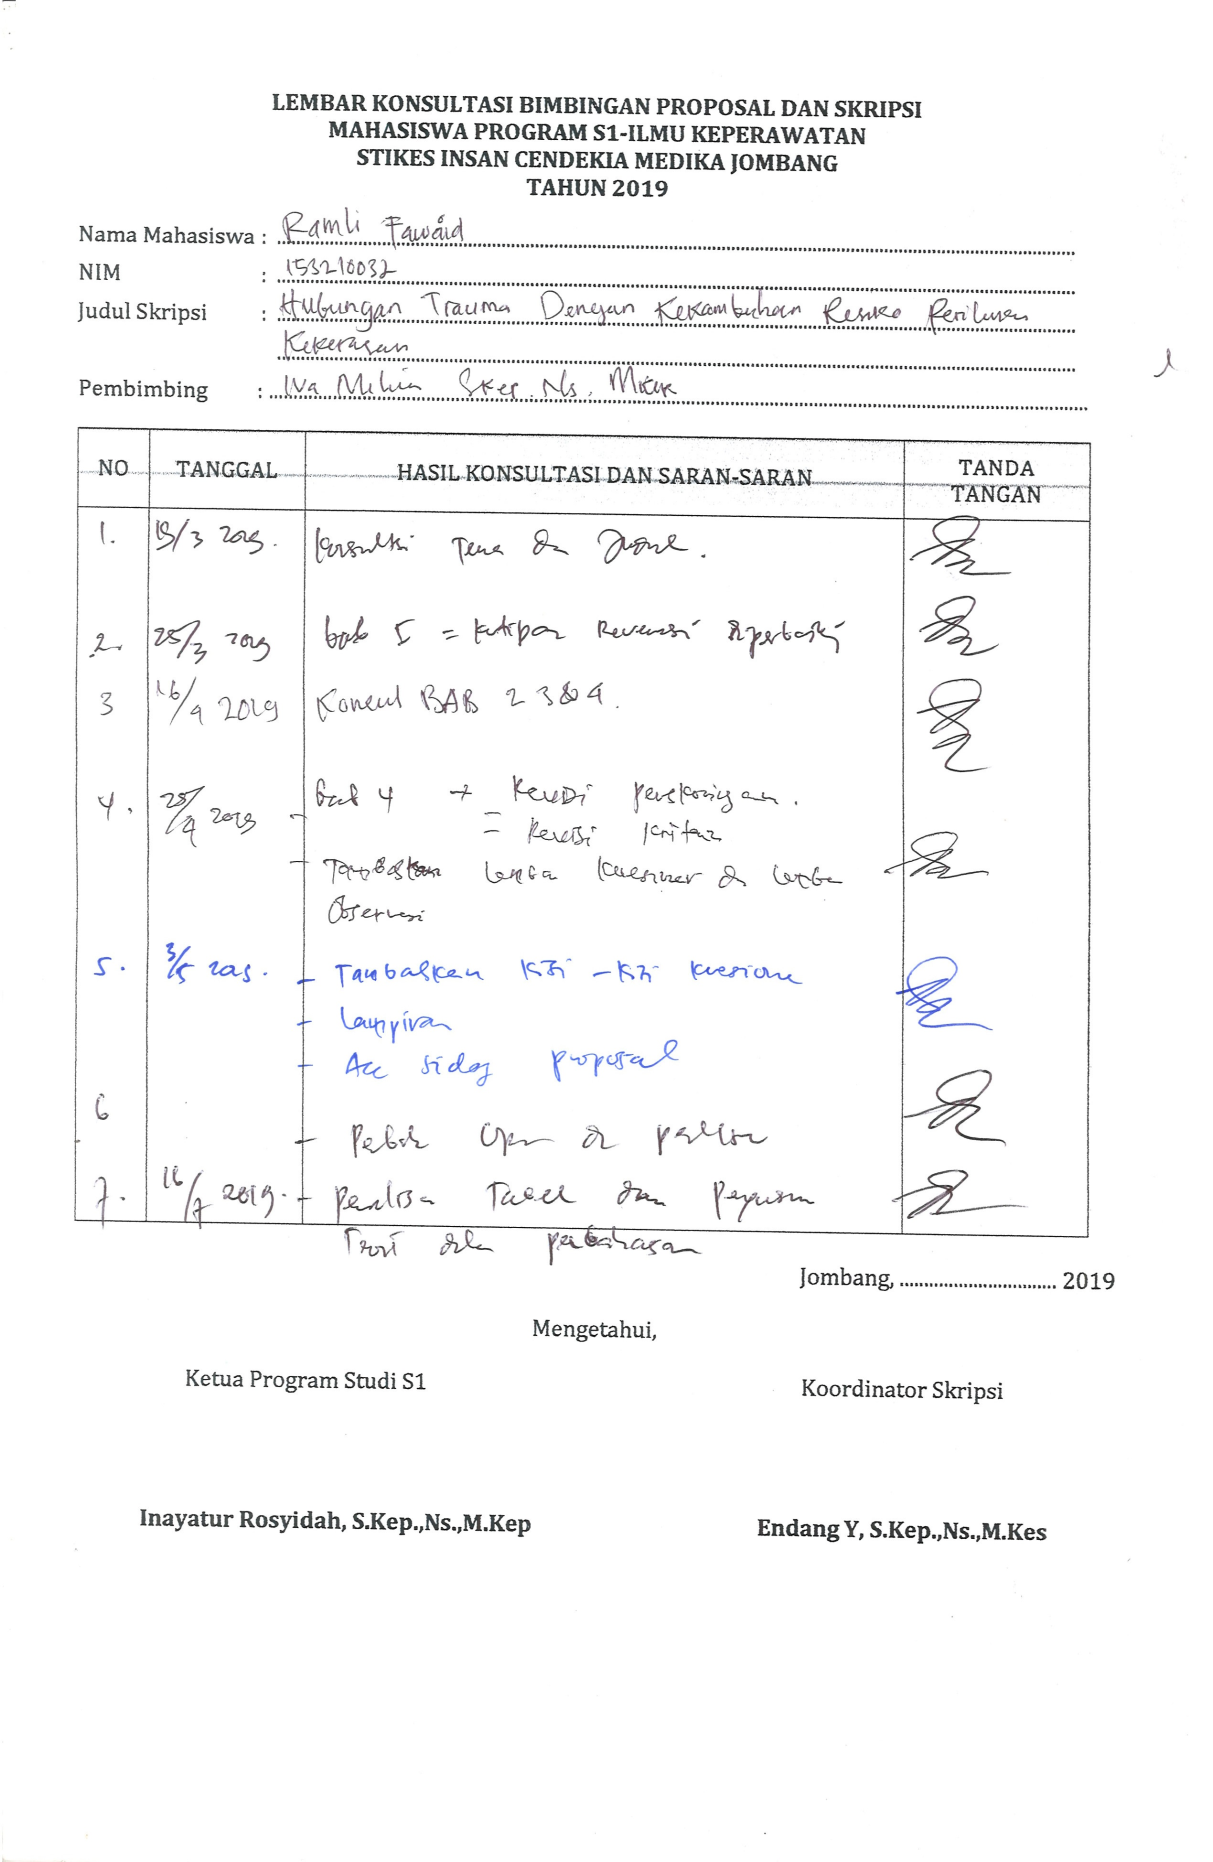 LEMBAR KONSULTASI BIMBINGAN PROPOSAL DAN SKRIPSI
MAHASISWA PROGRAM S1-ILMU KEPERAWATAN
STIKES INSAN CENDEKIA MEDIKA JOMBANG
TAHUN 2019
Nama Mahasiswa : Ramli Fawaid
NIM : 153210032
Judul Skripsi : Hubungan Trauma Dengan Kekambuhan Resiko Perilaku
Kekerasan
Pembimbing : Iva Milia Skep. Ns.
NO TANGGAL HASIL KONSULTASI DAN SARAN-SARAN TANDA TANGAN
1. 19/3 2019. Konsultasi Tema dan Judul.
2. 25/3 2019 bab I = kutipan
3 16/4 2019 Konsul BAB 2 3 & 4.
4. 25/4 2019 - bab 4 → Revisi
= Revisi kriteria
- Tambahkan lembar kuesioner dan lembar
Observasi
5. 3/5 2019. - Tambahkan kisi-kisi kuesioner
- Lampiran
- Acc sidang proposal
6
7. 16/7 2019. - Tabel dan
Teori dalam pembahasan
Jombang, .............................. 2019
Mengetahui,
Ketua Program Studi S1
Koordinator Skripsi
Inayatur Rosyidah, S.Kep.,Ns.,M.Kep
Endang Y, S.Kep.,Ns.,M.Kes